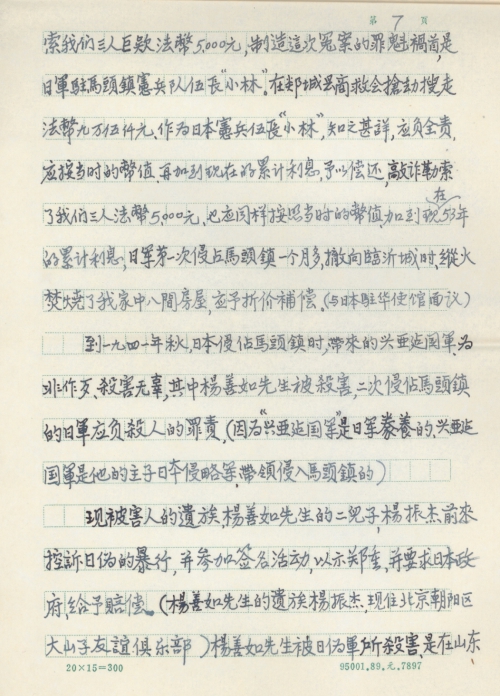 第 7 頁
索我们三人巨款法幣5,000元,制造這次冤案的罪魁禍首,是
日軍駐馬頭鎮憲兵队伍長“小林”。在郯城县商救会搶劫搜走
法幣九万伍仟元、作为日本憲兵伍長“小林”,知之甚詳,应负全責,
应按当时的幣值、再加到现在的累计利息,予以偿还,敲诈勒索
了我们三人法幣5,000元、也应同样按照当时的幣值,加到现在53年
的累计利息,日军第一次侵占馬頭鎮一个月多,撤向臨沂城时,縱火
焚燒了我家中八間房屋,应予折价補偿。(与日本駐华使馆面议)
到一九四一年秋,日本侵佔馬頭鎮时,帶來的兴亜延国軍、为
非作歹、殺害无辜,其中楊善如先生被殺害,二次侵佔馬頭鎮
的日軍应负殺人的罪責,(因为“兴亜延国军”是日军豢養的、兴亜延
国軍是他的主子日本侵略军,帶領侵入馬頭鎮的)
现被害人的遺族,楊善如先生的二兒子,楊振杰前來
控訴日偽的暴行,并参加签名活动,以示郑重,并要求日本政
府,给予賠偿。(楊善如先生的遺族楊振杰,现住北京朝陽区
大山子友誼俱乐部)楊善如先生被日偽軍所殺害,是在山东
20×15=300
95001.89.元.7897